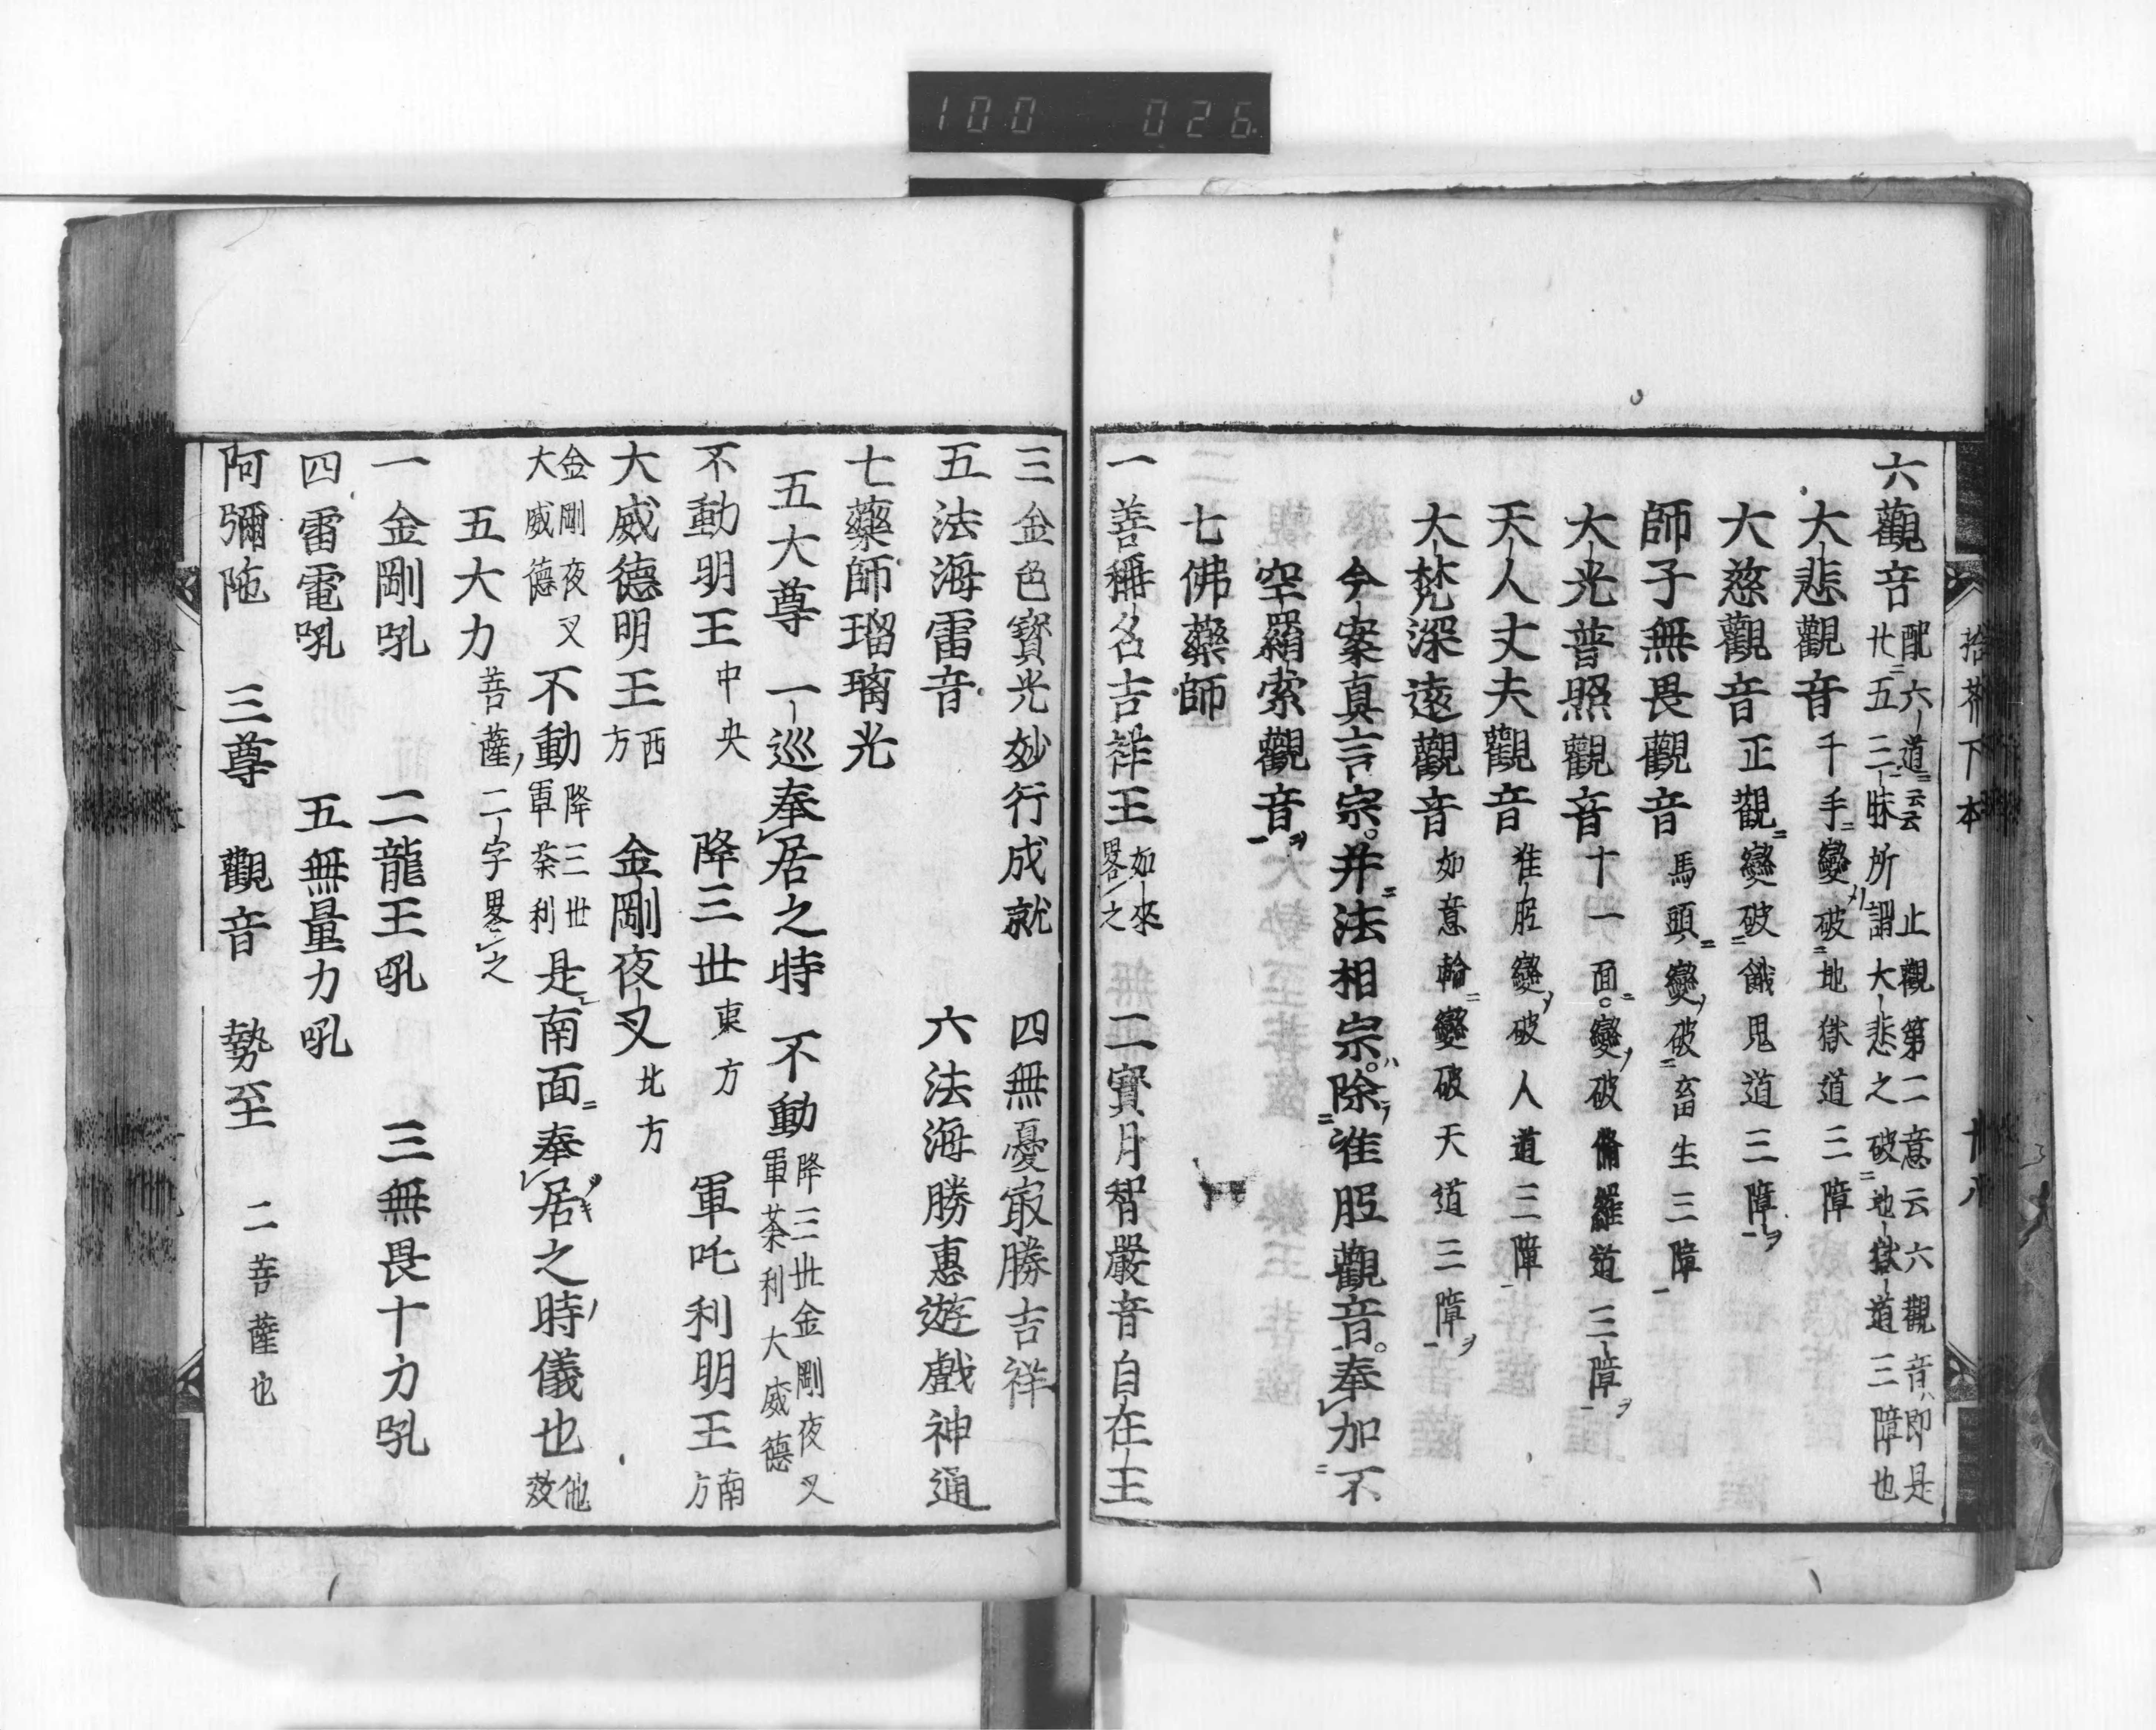 100 026
拾芥下本 十八
六觀音 配六道云云 止觀第二意云六觀音即是
廿五三昧所謂大悲之破地獄道三障也
大悲觀音 千手變破地獄道三障
大慈觀音 正觀變破餓鬼道三障
師子無畏觀音 馬頭變破畜生三障
大光普照觀音 十一面變破脩羅道三障
天人丈夫觀音 准胝變破人道三障
大梵深遠觀音 如意輪變破天道三障
今案真言宗并法相宗除准胝觀音奉加不
空羂索觀音
七佛藥師
一善稱名吉祥王 如來畧之 二寶月智嚴音自在王
三金色寶光妙行成就 四無憂最勝吉祥
五法海雷音 六法海勝惠遊戲神通
七藥師瑠璃光
五大尊 一巡奉居之時 不動 降三世金剛夜叉軍荼利大威德
不動明王 中央 降三世 東方 軍吒利明王 南方
大威德明王 西方 金剛夜叉 北方
金剛夜叉大威德 不動 降三世軍荼利 是南面奉居之時儀也 他效
五大力 菩薩二字畧之
一金剛吼 二龍王吼 三無畏十力吼
四雷電吼 五無量力吼
阿彌陁三尊 觀音 勢至 二菩薩也